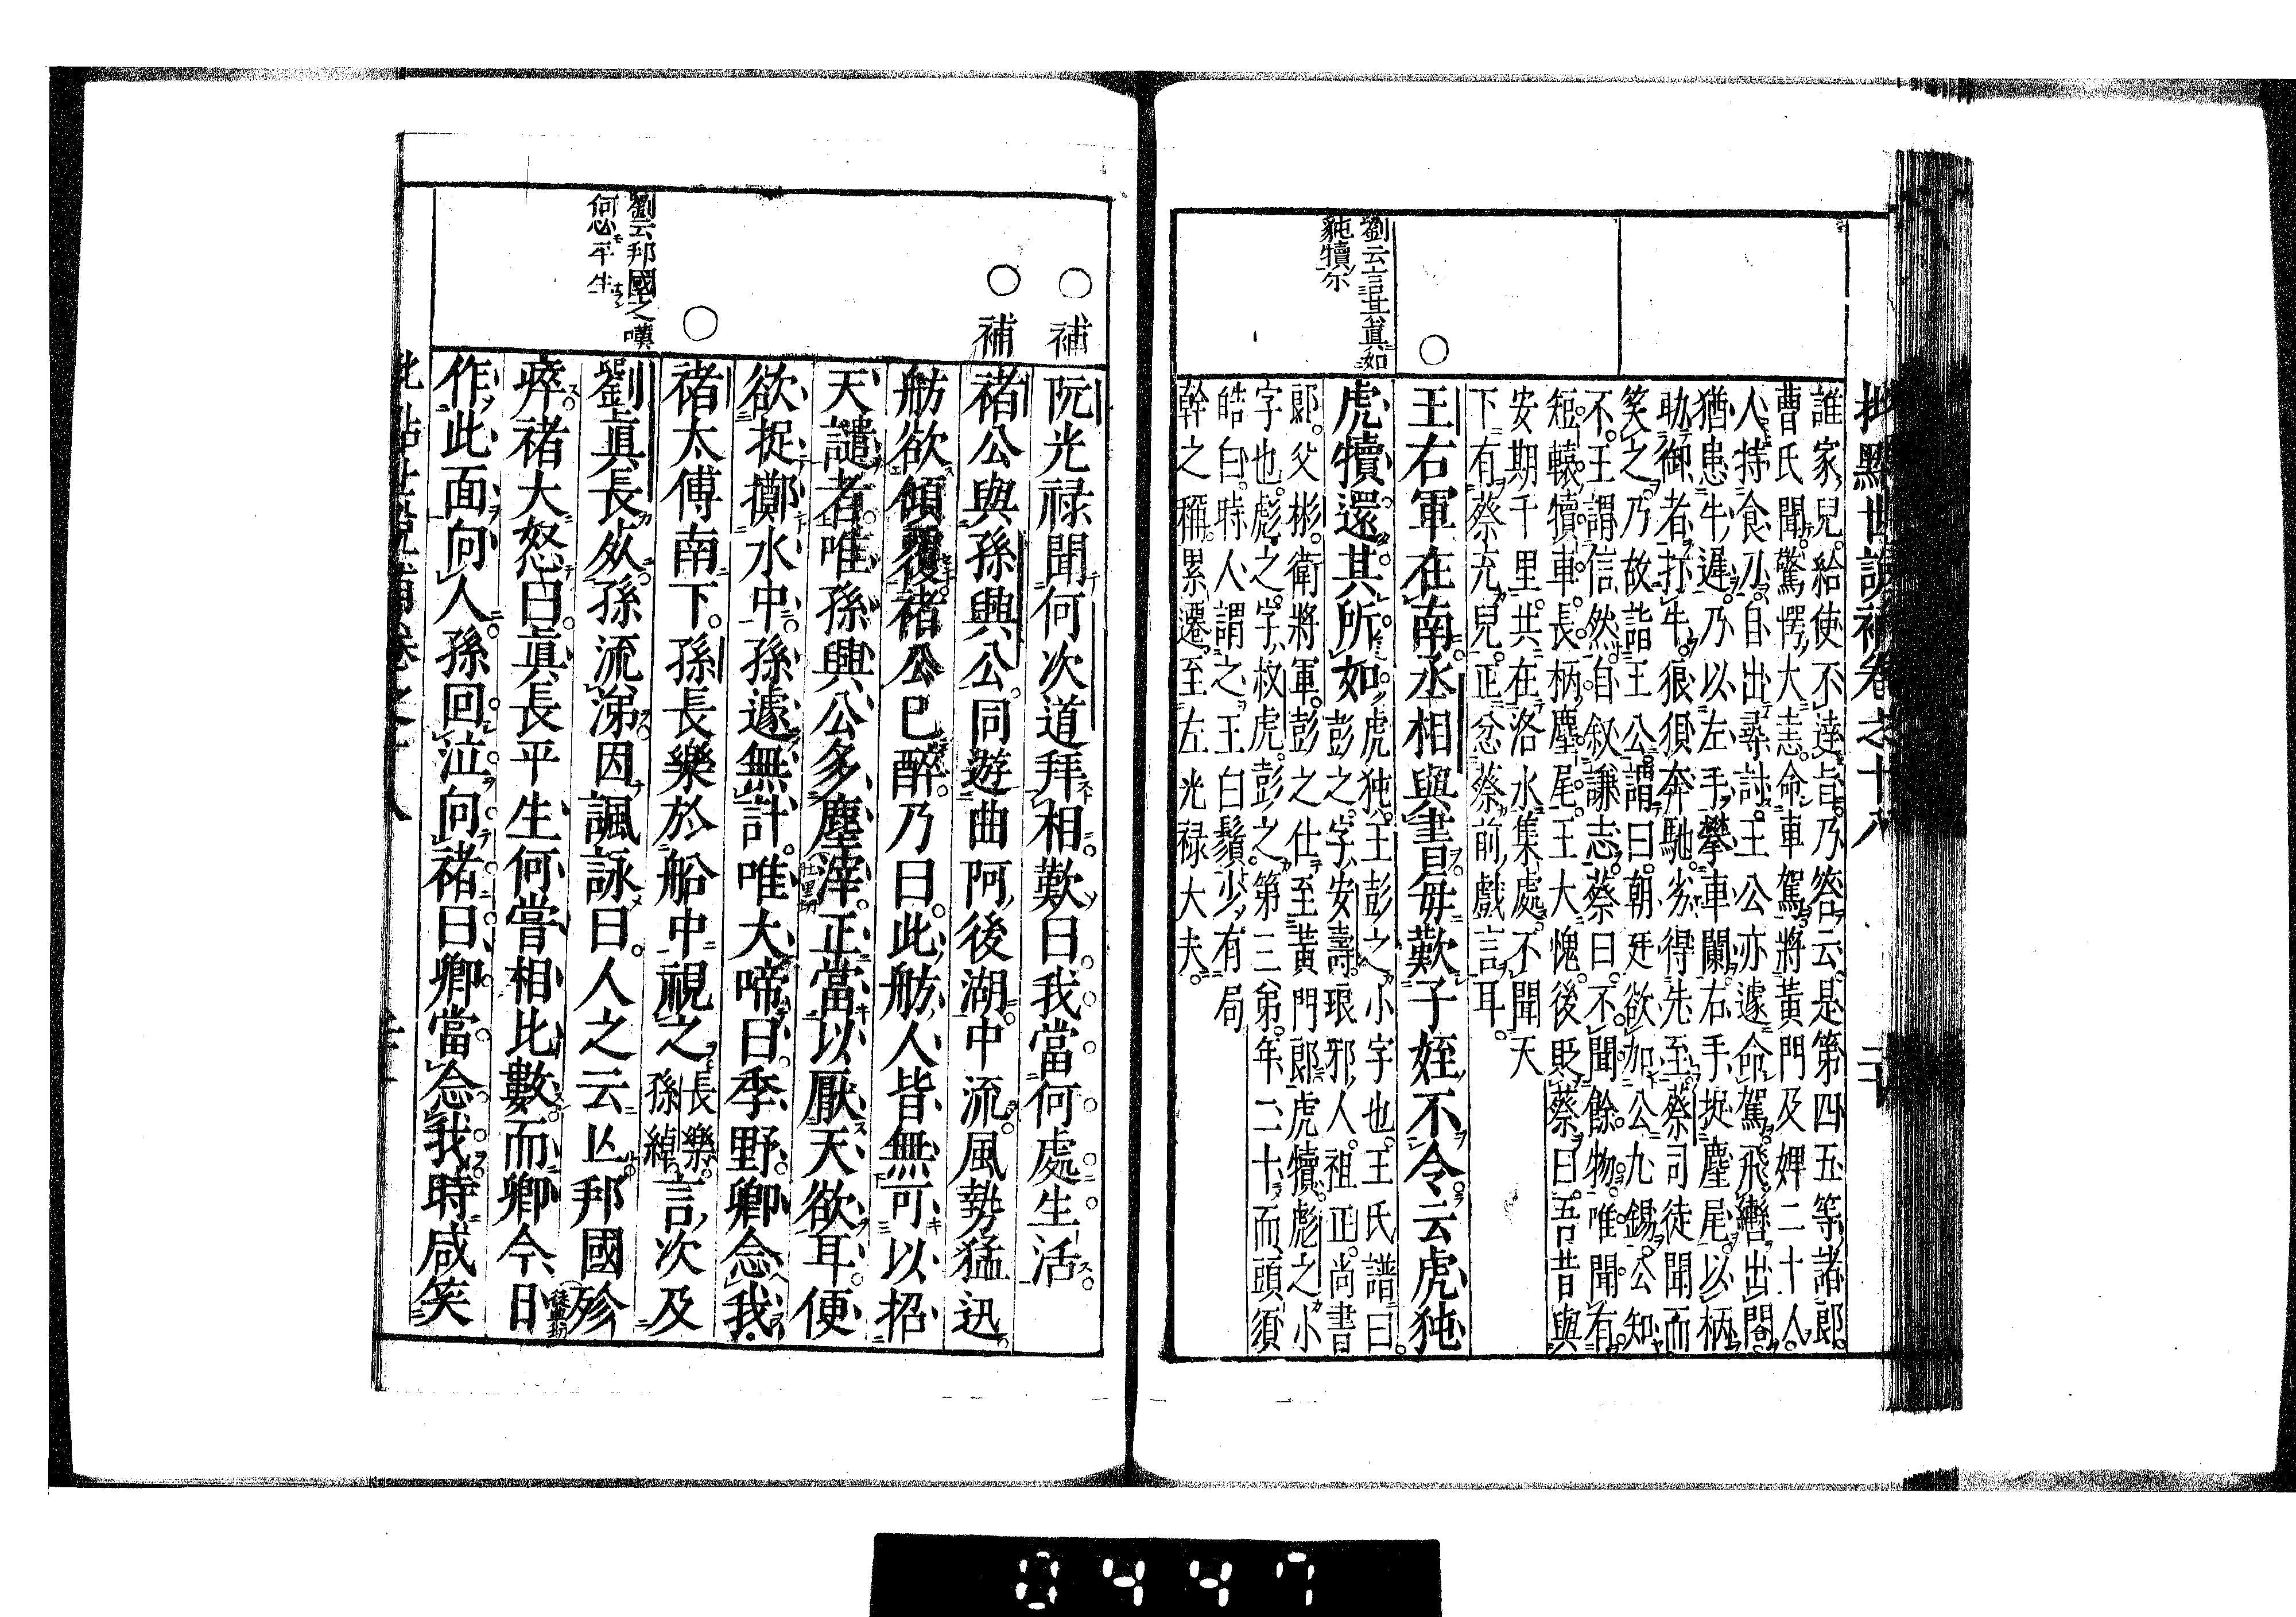 批點世說補卷之十八 二十
誰家兒給使不達旨乃答云是第四五等諸郎
曹氏聞驚愕大恚命車駕將黃門及婢二十人
人持食刀自出尋討王公亦遽命駕飛轡出閤
猶患牛遲乃以左手攀車闌右手捉麈尾以柄
助御者打牛狼狽奔馳劣得先至蔡司徒聞而
笑之乃故詣王公謂曰朝廷欲加公九錫公知
不王謂信然自敘謙志蔡曰不聞餘物唯聞有
短轅犢車長柄麈尾王大愧後貶蔡曰吾昔與
安期千里共在洛水集處不聞天
下有蔡充兒正忿蔡前戲言耳
○
王右軍在南丞相與書曰每歎子姪不令云虎㹠
劉云言其眞如
㹠犢尒
虎犢還其所如
虎㹠王彭之小字也王氏譜曰
彭之字安壽琅邪人祖正尚書
郎父彬衛將軍彭之仕至黃門郎虎犢彪之小
字也彪之字叔虎彭之第三弟年二十而頭須
皓白時人謂之王白鬚少有局
幹之稱累遷至左光禄大夫
○補
阮光禄聞何次道拜相歎曰我當何處生活
○補
褚公與孫興公同遊曲阿後湖中流風勢猛迅
舫欲傾覆褚公已醉乃曰此舫人皆無可以招
天譴者唯孫興公多塵滓正當以厭天欲耳便
欲捉擲水中孫遽無計唯大啼曰季野卿念我
○
褚太傅南下孫長樂於船中視之
長樂
孫綽
言次及
劉云邦國之嘆
何㤀平生
劉眞長死孫流涕因諷詠曰人之云亡邦國殄
瘁褚大怒曰眞長平生何嘗相比數而卿今日
作此面向人孫回泣向褚曰卿當念我時咸笑
0447